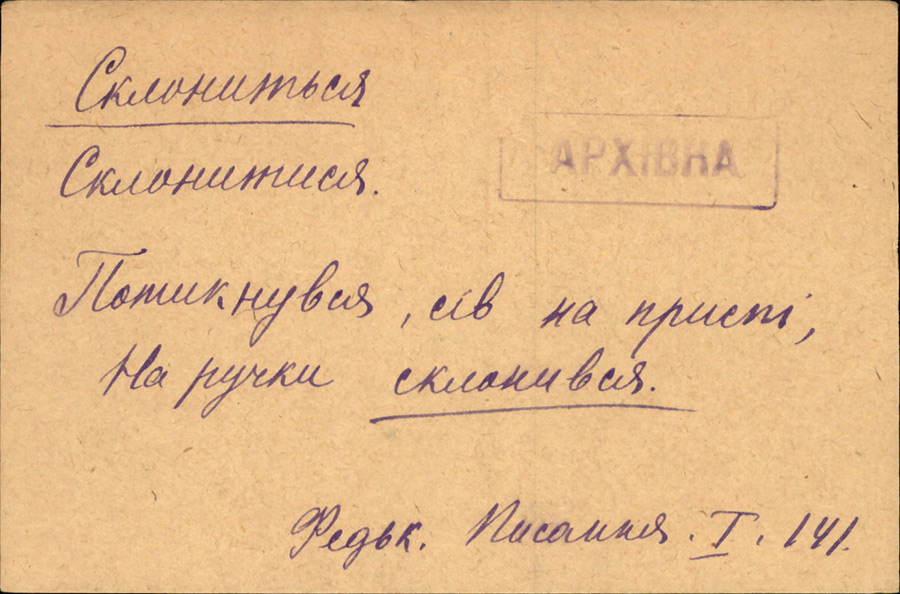 Склониться
АРХІВНА
Склонитися.
Потикнувся, сів на приспі,
На ручки склонився.
Федьк. Писання. I. 141.